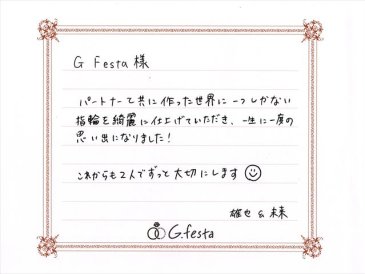 G Festa 様
パートナーで共に作った世界に一つしかない
指輪を綺麗に仕上げていただき、一生に一度の
思い出になりました!
これからも2人でずっと大切にします
雄也 & 未来
G.festa